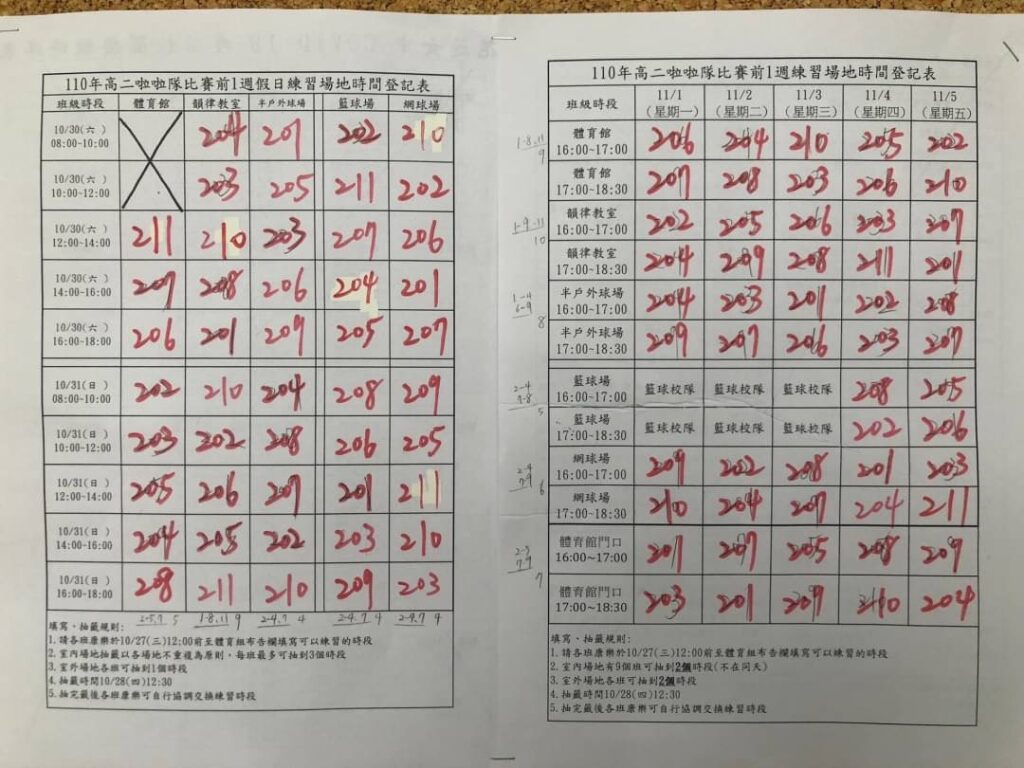 110年高二啦啦隊比賽前1週假日練習場地時間登記表
班級時段 體育館 韻律教室 半戶外球場 籃球場 網球場
10/30(六) 08:00~10:00 204 201 202 210
10/30(六) 10:00~12:00 203 205 211 202
10/30(六) 12:00~14:00 211 210 203 207 206
10/30(六) 14:00~16:00 207 208 206 204 201
10/30(六) 16:00~18:00 206 201 209 205 207
10/31(日) 08:00~10:00 202 210 204 208 209
10/31(日) 10:00~12:00 203 202 208 206 205
10/31(日) 12:00~14:00 205 206 207 201 211
10/31(日) 14:00~16:00 204 205 202 203 210
10/31(日) 16:00~18:00 208 211 210 209 203
填寫、抽籤規則:
1.請各班康樂於10/27(三)12:00前至體育組布告欄填寫可以練習的時段
2.室內場地抽籤以各場地不重複為原則，每班最多可抽到3個時段
3.室外場地各班可抽到1個時段
4.抽籤時間10/28(四)12:30
5.抽完籤後各班康樂可自行協調交換練習時段
110年高二啦啦隊比賽前1週練習場地時間登記表
班級時段 11/1(星期一) 11/2(星期二) 11/3(星期三) 11/4(星期四) 11/5(星期五)
體育館 16:00~17:00 206 204 210 205 202
體育館 17:00~18:30 207 208 203 206 210
韻律教室 16:00~17:00 202 205 206 203 207
韻律教室 17:00~18:30 204 209 208 211 201
半戶外球場 16:00~17:00 204 203 201 202 208
半戶外球場 17:00~18:30 209 207 206 203 207
籃球場 16:00~17:00 籃球校隊 籃球校隊 籃球校隊 208 205
籃球場 17:00~18:30 籃球校隊 籃球校隊 籃球校隊 202 206
網球場 16:00~17:00 209 202 208 201 203
網球場 17:00~18:30 210 204 209 204 211
體育館門口 16:00~17:00 201 207 205 208 209
體育館門口 17:00~18:30 203 201 209 210 204
填寫、抽籤規則:
1.請各班康樂於10/27(三)12:00前至體育組布告欄填寫可以練習的時段
2.室內場地有9個班可抽到2個時段(不在同天)
3.室外場地各班可抽到2個時段
4.抽籤時間10/28(四)12:30
5.抽完籤後各班康樂可自行協調交換練習時段